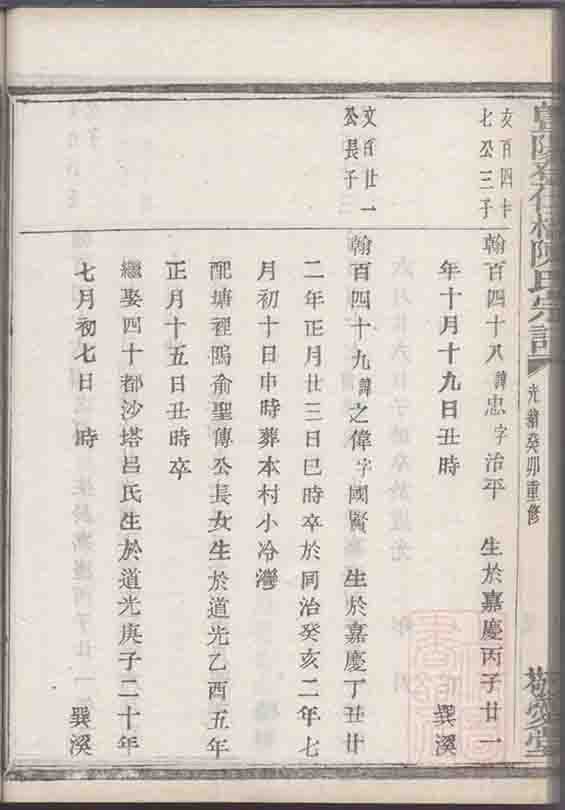 暨陽孝在橋陳氏宗譜
光緒癸卯重修
敬愛堂
亥百四十
七公三子
翰百四十八諱忠字治平 生於嘉慶丙子廿一
年十月十九日丑時 巽溪
文百廿一
公長子
翰百四十九諱之偉字國賢 生於嘉慶丁丑廿
二年正月廿三日巳時卒於同治癸亥二年七
月初十日申時葬本村小冷灣
配塘裡隖俞聖傳公長女生於道光乙酉五年
正月十五日丑時卒
繼娶四十都沙塔呂氏生於道光庚子二十年
七月初七日 時 巽溪